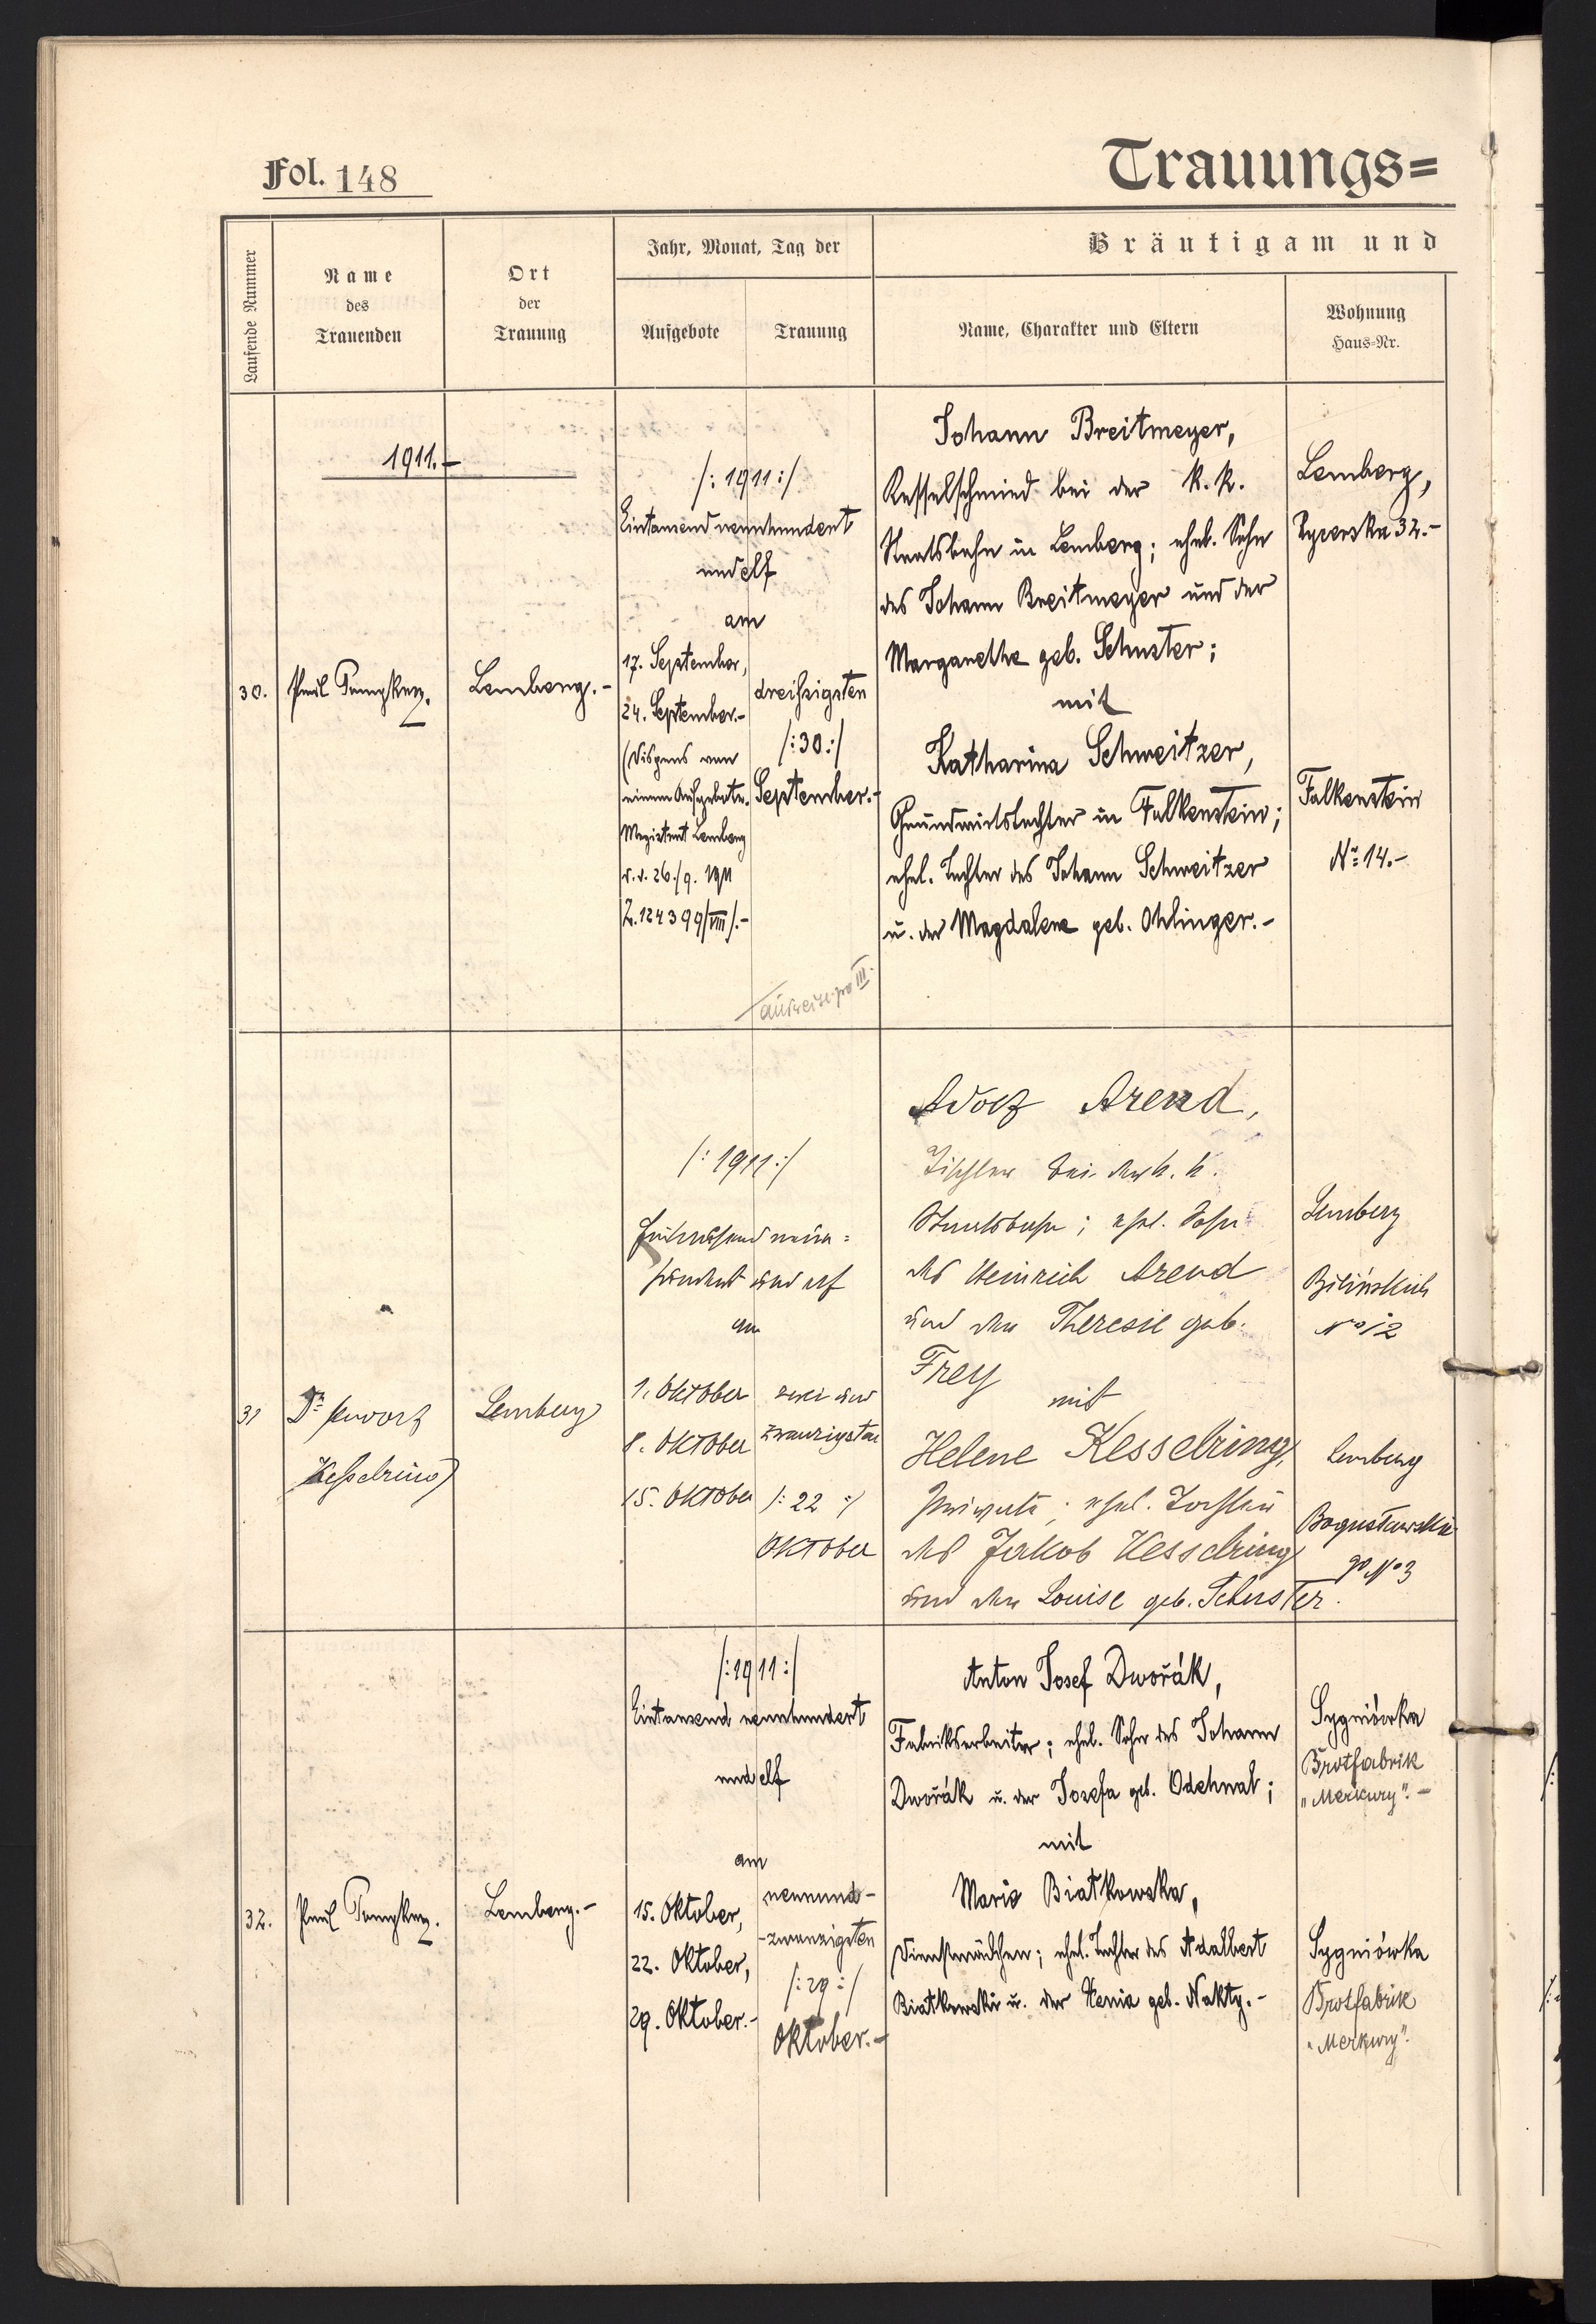 Fol. 148
Trauungs=
Laufende Nummer
Name
des
Trauenden
Ort
der
Trauung
Jahr, Monat, Tag der
Aufgebote
Trauung
Bräutigam und
Name, Charakter und Eltern
Wohnung
Haus-Nr.
1911.-
30.
Lemberg.-
/: 1911 :/
Eintausend neunhundert
und elf
am
17. September,
24. September.-
(Dispens von
einem Aufgebote.
Magistrat Lemberg
v. d. 26./9. 1911
Z. 124399/VIII/.-
dreißigsten
/: 30 :/
September.-
Johann Breitmeyer,
Kesselschmied bei der k. k.
Staatsbahn in Lemberg; ehel. Sohn
des Johann Breitmeyer und der
Margarethe geb. Schuster;
mit
Katharina Schweitzer,
Grundwirtstochter in Falkenstein;
ehel. Tochter des Johann Schweitzer
u. der Magdalena geb. Ohlinger.-
Lemberg,
32.-
Falkenstein
No 14.-
ausweis pro III.
31
Dr
Kesselring
Lemberg
/: 1911 :/
Eintausend neun=
hundert und elf
am
1. Oktober
8. Oktober
15. Oktober
zwei und
zwanzigsten
/: 22 :/
Oktober
Adolf Arend,
Tischler bei der k. k.
Staatsbahn; ehel. Sohn
des Heinrich Arend
und der Theresie geb.
Frey
mit
Helene Kesselring,
Private; ehel. Tochter
des Jakob Kesselring
und der Louise geb. Schuster.
Lemberg
Bilińskich
No 12
Lemberg
Bogusławskie
go No 3
32.
Lemberg.-
/: 1911 :/
Eintausend neunhundert
und elf
am
15. Oktober,
22. Oktober,
29. Oktober.-
neunund-
-zwanzigsten
/: 29 :/
Oktober.-
Anton Josef Dwořák,
Fabriksarbeiter; ehel. Sohn des Johann
Dwořák u. der Josefa geb. Odehnal;
mit
Maria Białkowska,
Dienstmädchen; ehel. Tochter des Adalbert
Białkowski u. der Xenia geb. Nakty.-
Sygniówka
Brotfabrik
"Merkury".-
Sygniówka
Brotfabrik
"Merkury".